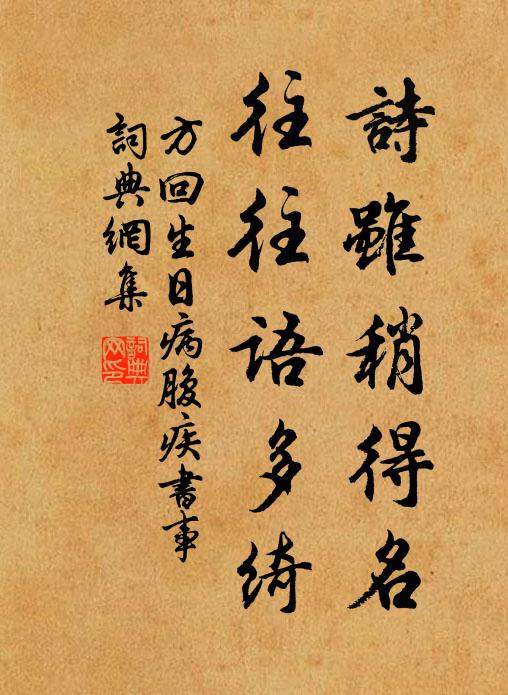 詩雖稍得名
往往語多綺
方回生日病腹疾書事
詞典網集
詞典網印